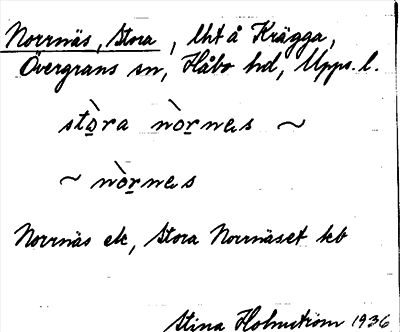 Norrnäs, Stora, lht å Krägga,
Övergrans sn, Håbo hd, Upps. l.
stòra nòrnes ~
~ nòrnes
Norrnäs ek, Stora Norrnäset kb
Stina Holmström 1936